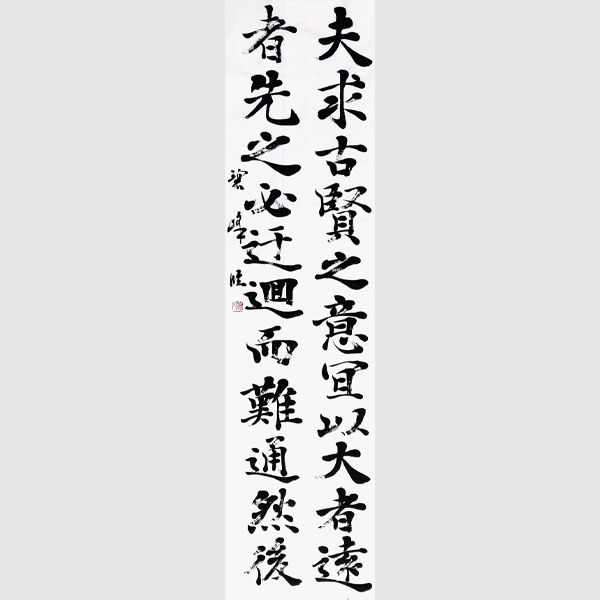 夫求古賢之意宜以大者遠
者先之必迂迴而難通然後
峰臨